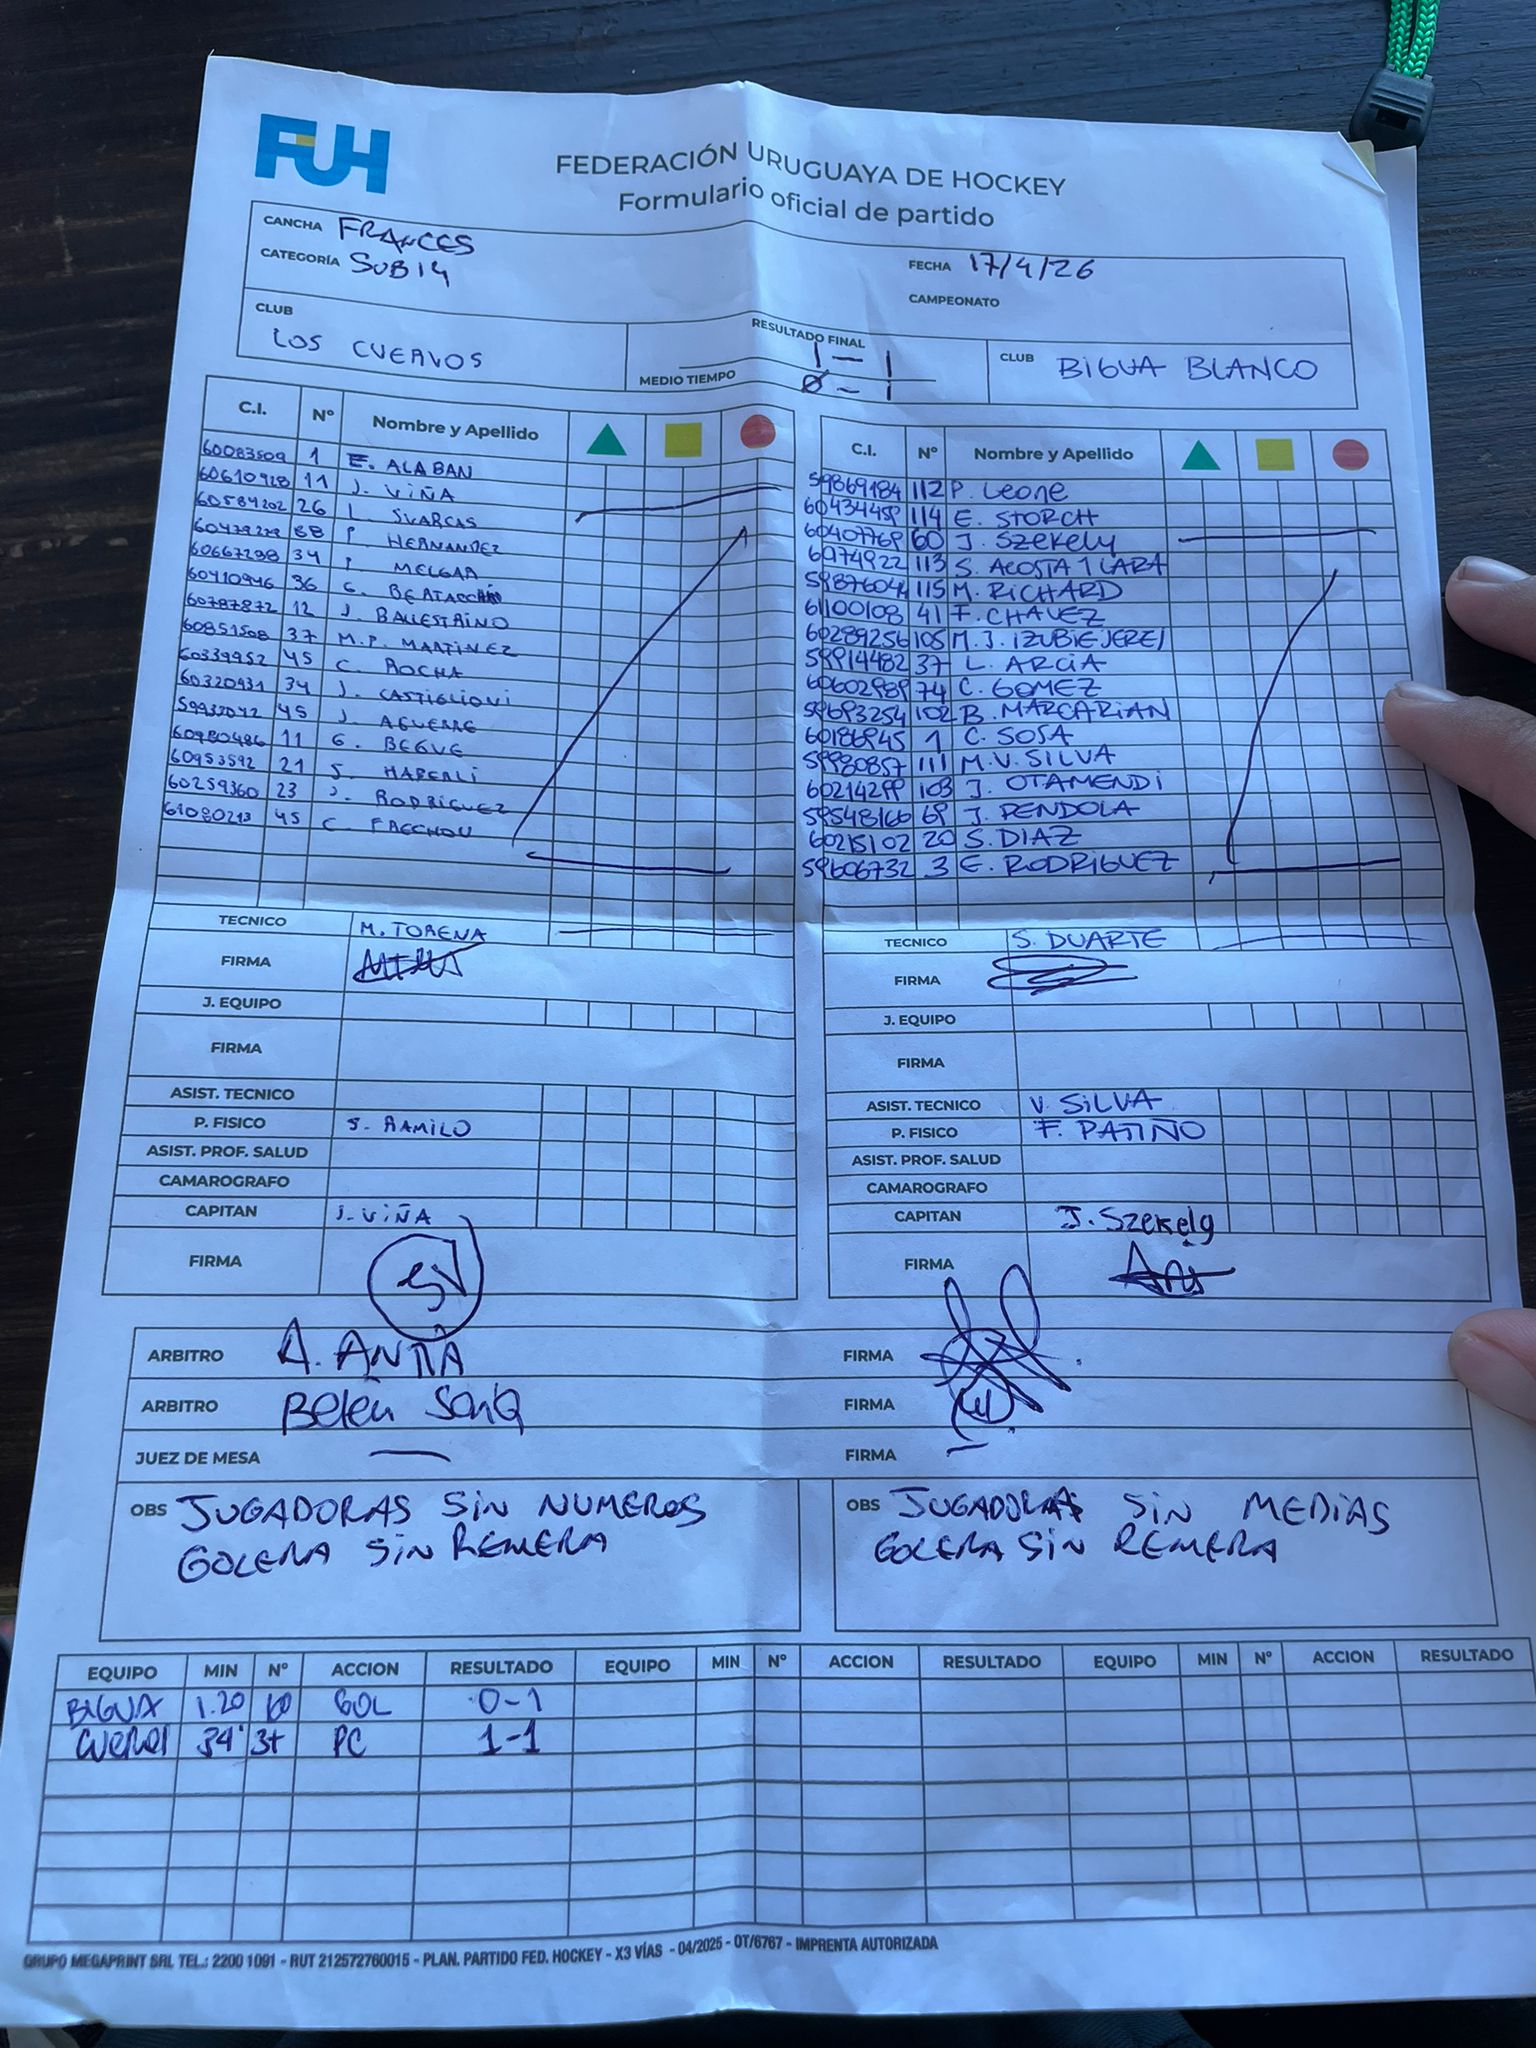 FUH
FEDERACIÓN URUGUAYA DE HOCKEY
Formulario oficial de partido
CANCHA FRANCES
CATEGORÍA SUB14
FECHA 17/4/26
CAMPEONATO
CLUB LOS CUERVOS
RESULTADO FINAL 1 - 1
MEDIO TIEMPO 0 - 1
CLUB BIGUA BLANCO
C.I. Nº Nombre y Apellido
60083509 1 E. ALABAN
60610928 11 J. VIÑA
60584202 26 L. SUARCAS
60479279 88 P. HERNANDEZ
60667298 34 P. MELGAR
60410946 36 G.
60787872 12 J. BALLESTRINO
60851508 37 M.P. MARTINEZ
60339952 45 C. ROCHA
60320931 34 J. CASTIGLIONI
59932042 45 J. AGUERRE
60780486 11 G. BEGUE
60953592 21 S.
60259360 23 J. RODRIGUEZ
61080213 45 C.
C.I. Nº Nombre y Apellido
59869184 112 P. Leone
60434459 114 E. STORCH
60407769 60 J. SZEKELY
6074922 113 S. ACOSTA Y LARA
5987604 115 M. RICHARD
61100108 41 F. CHAVEZ
60289256 105 M. J.
59914482 37 L. ARCIA
60602989 74 C. GOMEZ
59693254 102 B. MARCARIAN
60186945 1 C. SOSA
59980857 111 M.V. SILVA
60214299 103 J. OTAMENDI
59548166 69 J. PENDOLA
60215102 20 S. DIAZ
59606732 3 E. RODRIGUEZ
TECNICO M. TORENA
FIRMA
J. EQUIPO
FIRMA
ASIST. TECNICO
P. FISICO S. RAMILO
ASIST. PROF. SALUD
CAMAROGRAFO
CAPITAN J. VIÑA
FIRMA
TECNICO S. DUARTE
FIRMA
J. EQUIPO
FIRMA
ASIST. TECNICO V. SILVA
P. FISICO F. PATIÑO
ASIST. PROF. SALUD
CAMAROGRAFO
CAPITAN J. Szekely
FIRMA
ARBITRO A. FIRMA
ARBITRO Belén FIRMA
JUEZ DE MESA — FIRMA —
OBS JUGADORAS SIN NUMEROS
GOLERA SIN REMERA
OBS JUGADORAS SIN MEDIAS
GOLERA SIN REMERA
EQUIPO MIN Nº ACCION RESULTADO EQUIPO MIN Nº ACCION RESULTADO EQUIPO MIN Nº ACCION RESULTADO
BIGUA 1.20 60 GOL 0-1
34' 37 PC 1-1
GRUPO MEGAPRINT SRL TEL.: 2200 1091 - RUT 212572760015 - PLAN. PARTIDO FED. HOCKEY - X3 VÍAS - 04/2025 - OT/6767 - IMPRENTA AUTORIZADA